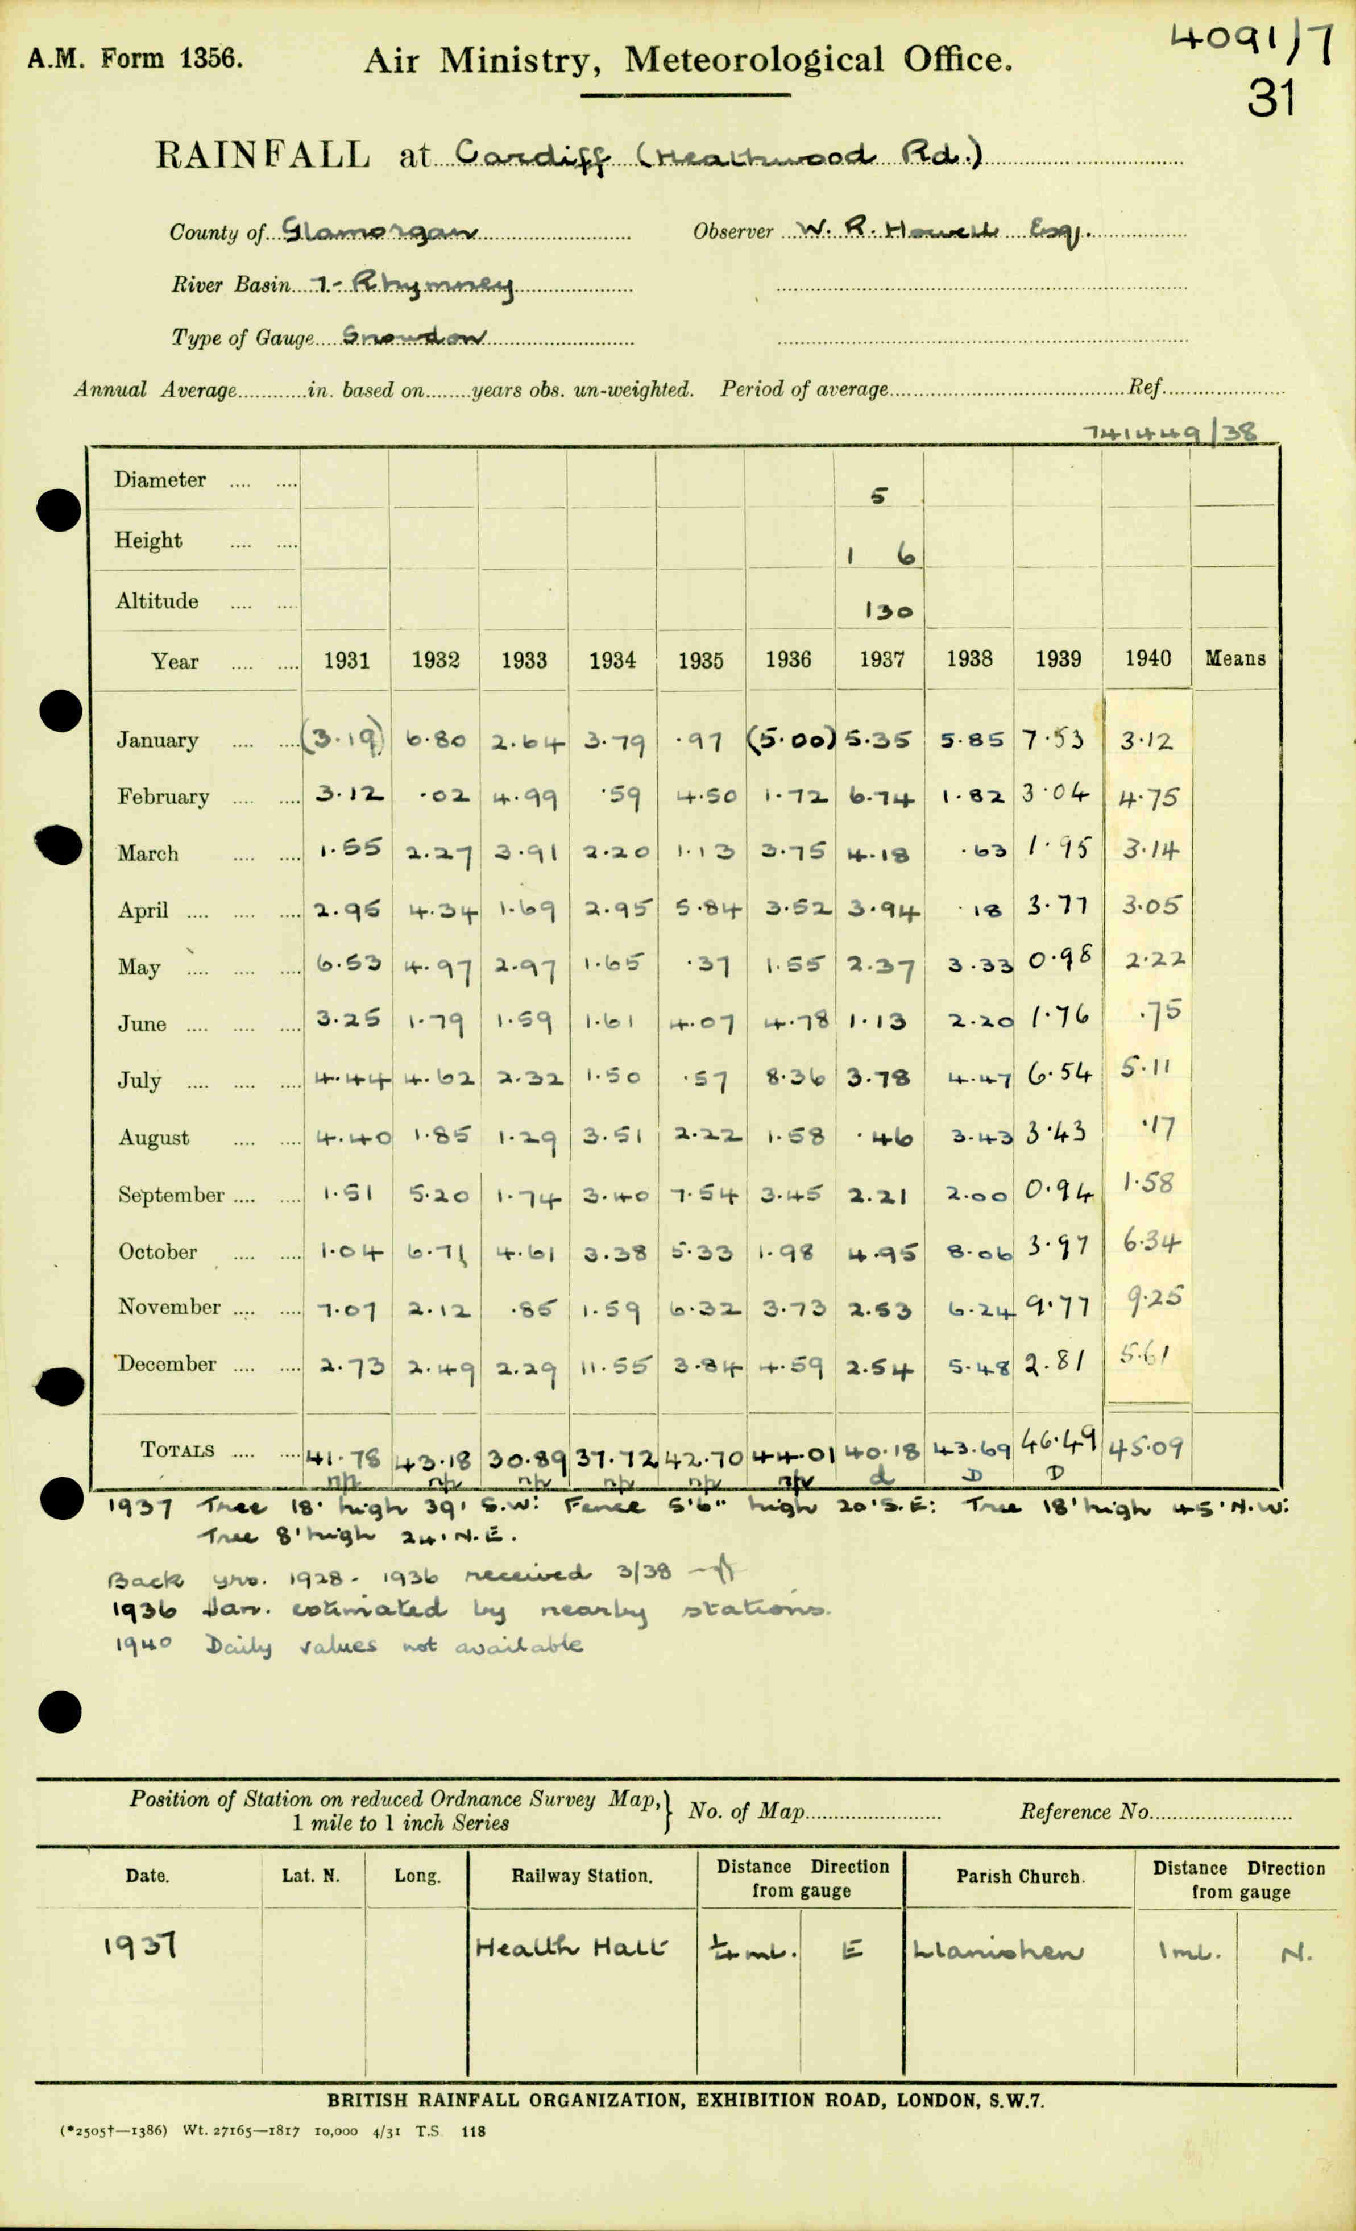 4091/7
A.M. Form 1356. Air Ministry, Meteorological Office.
31
RAINFALL at Cardiff (Heathwood Rd.)
County of Glamorgan Observer W. R. Howell Esq.
River Basin 7 - Rhymney
Type of Gauge Snowdon
Annual Average............in. based on........years obs. un-weighted. Period of average........................Ref.....................
741449/38
Diameter .... .... 5
Height .... .... 1 6
Altitude .... .... 130
Year .... .... 1931 1932 1933 1934 1935 1936 1937 1938 1939 1940 Means
January .... .... (3.19) 6.80 2.64 3.79 .97 (5.00) 5.35 5.85 7.53 3.12
February .... .... 3.12 .02 4.99 .59 4.50 1.72 6.74 1.82 3.04 4.75
March .... .... 1.55 2.27 3.91 2.20 1.13 3.75 4.18 .63 1.95 3.14
April .... .... .... 2.95 4.34 1.69 2.95 5.84 3.52 3.94 .18 3.77 3.05
May .... .... .... 6.53 4.97 2.97 1.65 .37 1.55 2.37 3.33 0.98 2.22
June .... .... .... 3.25 1.79 1.59 1.61 4.07 4.78 1.13 2.20 1.76 .75
July .... .... .... 4.44 4.62 2.32 1.50 .57 8.36 3.78 4.47 6.54 5.11
August .... .... 4.40 1.85 1.29 3.51 2.22 1.58 .46 3.43 3.43 .17
September .... .... 1.51 5.20 1.74 3.40 7.54 3.45 2.21 2.00 0.94 1.58
October .... .... 1.04 6.71 4.61 3.38 5.33 1.98 4.95 8.06 3.97 6.34
November .... .... 7.07 2.12 .85 1.59 6.32 3.73 2.53 6.24 9.77 9.25
December .... .... 2.73 2.49 2.29 11.55 3.84 4.59 2.54 5.48 2.81 5.61
TOTALS .... .... 41.78 43.18 30.89 37.72 42.70 44.01 40.18 43.69 46.49 45.09
np np np np np np d D D
1937 Tree 18' high 39' S.W: Fence 5'6" high 20' S.E: Tree 18' high 45' N.W:
Tree 8' high 24' N.E.
Back yrs. 1928 - 1936 received 3/38
1936 Jan. estimated by nearby stations.
1940 Daily values not available
Position of Station on reduced Ordnance Survey Map,} No. of Map........................ Reference No.........................
1 mile to 1 inch Series
Date. Lat. N. Long. Railway Station. Distance Direction from gauge Parish Church. Distance Direction from gauge
1937 Heath Halt ¼ ml. E Llanishen 1 ml. N.
BRITISH RAINFALL ORGANIZATION, EXHIBITION ROAD, LONDON, S.W.7.
(*2505†—1386) Wt. 27165—1817 10,000 4/31 T.S. 118